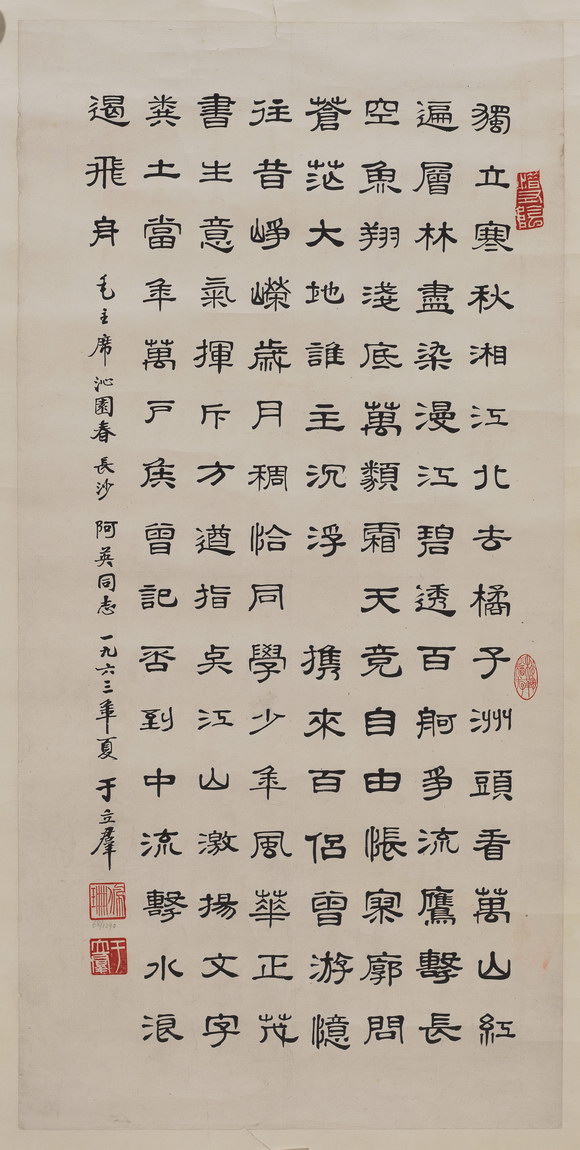 獨立寒秋湘江北去橘子洲頭看萬山紅
遍層林盡染漫江碧透百舸爭流鷹擊長
空魚翔淺底萬類霜天竞自由悵寥廓問
蒼茫大地誰主沉浮 携來百侶曾游憶
往昔崢嶸歲月稠恰同學少年風華正茂
書生意氣揮斥方遒指点江山激揚文字
糞土當年萬戶侯曾記否到中流擊水浪
遏飛舟 毛主席沁園春長沙 阿英同志 一九六三年夏 于立羣
于立羣